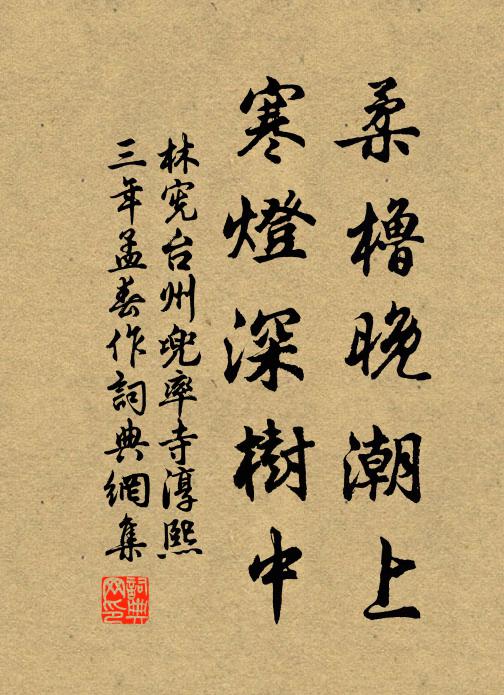 柔櫓晚潮上
寒燈深樹中
林宪台州兜率寺淳熙
三年孟春作詞典網集
詞典网印